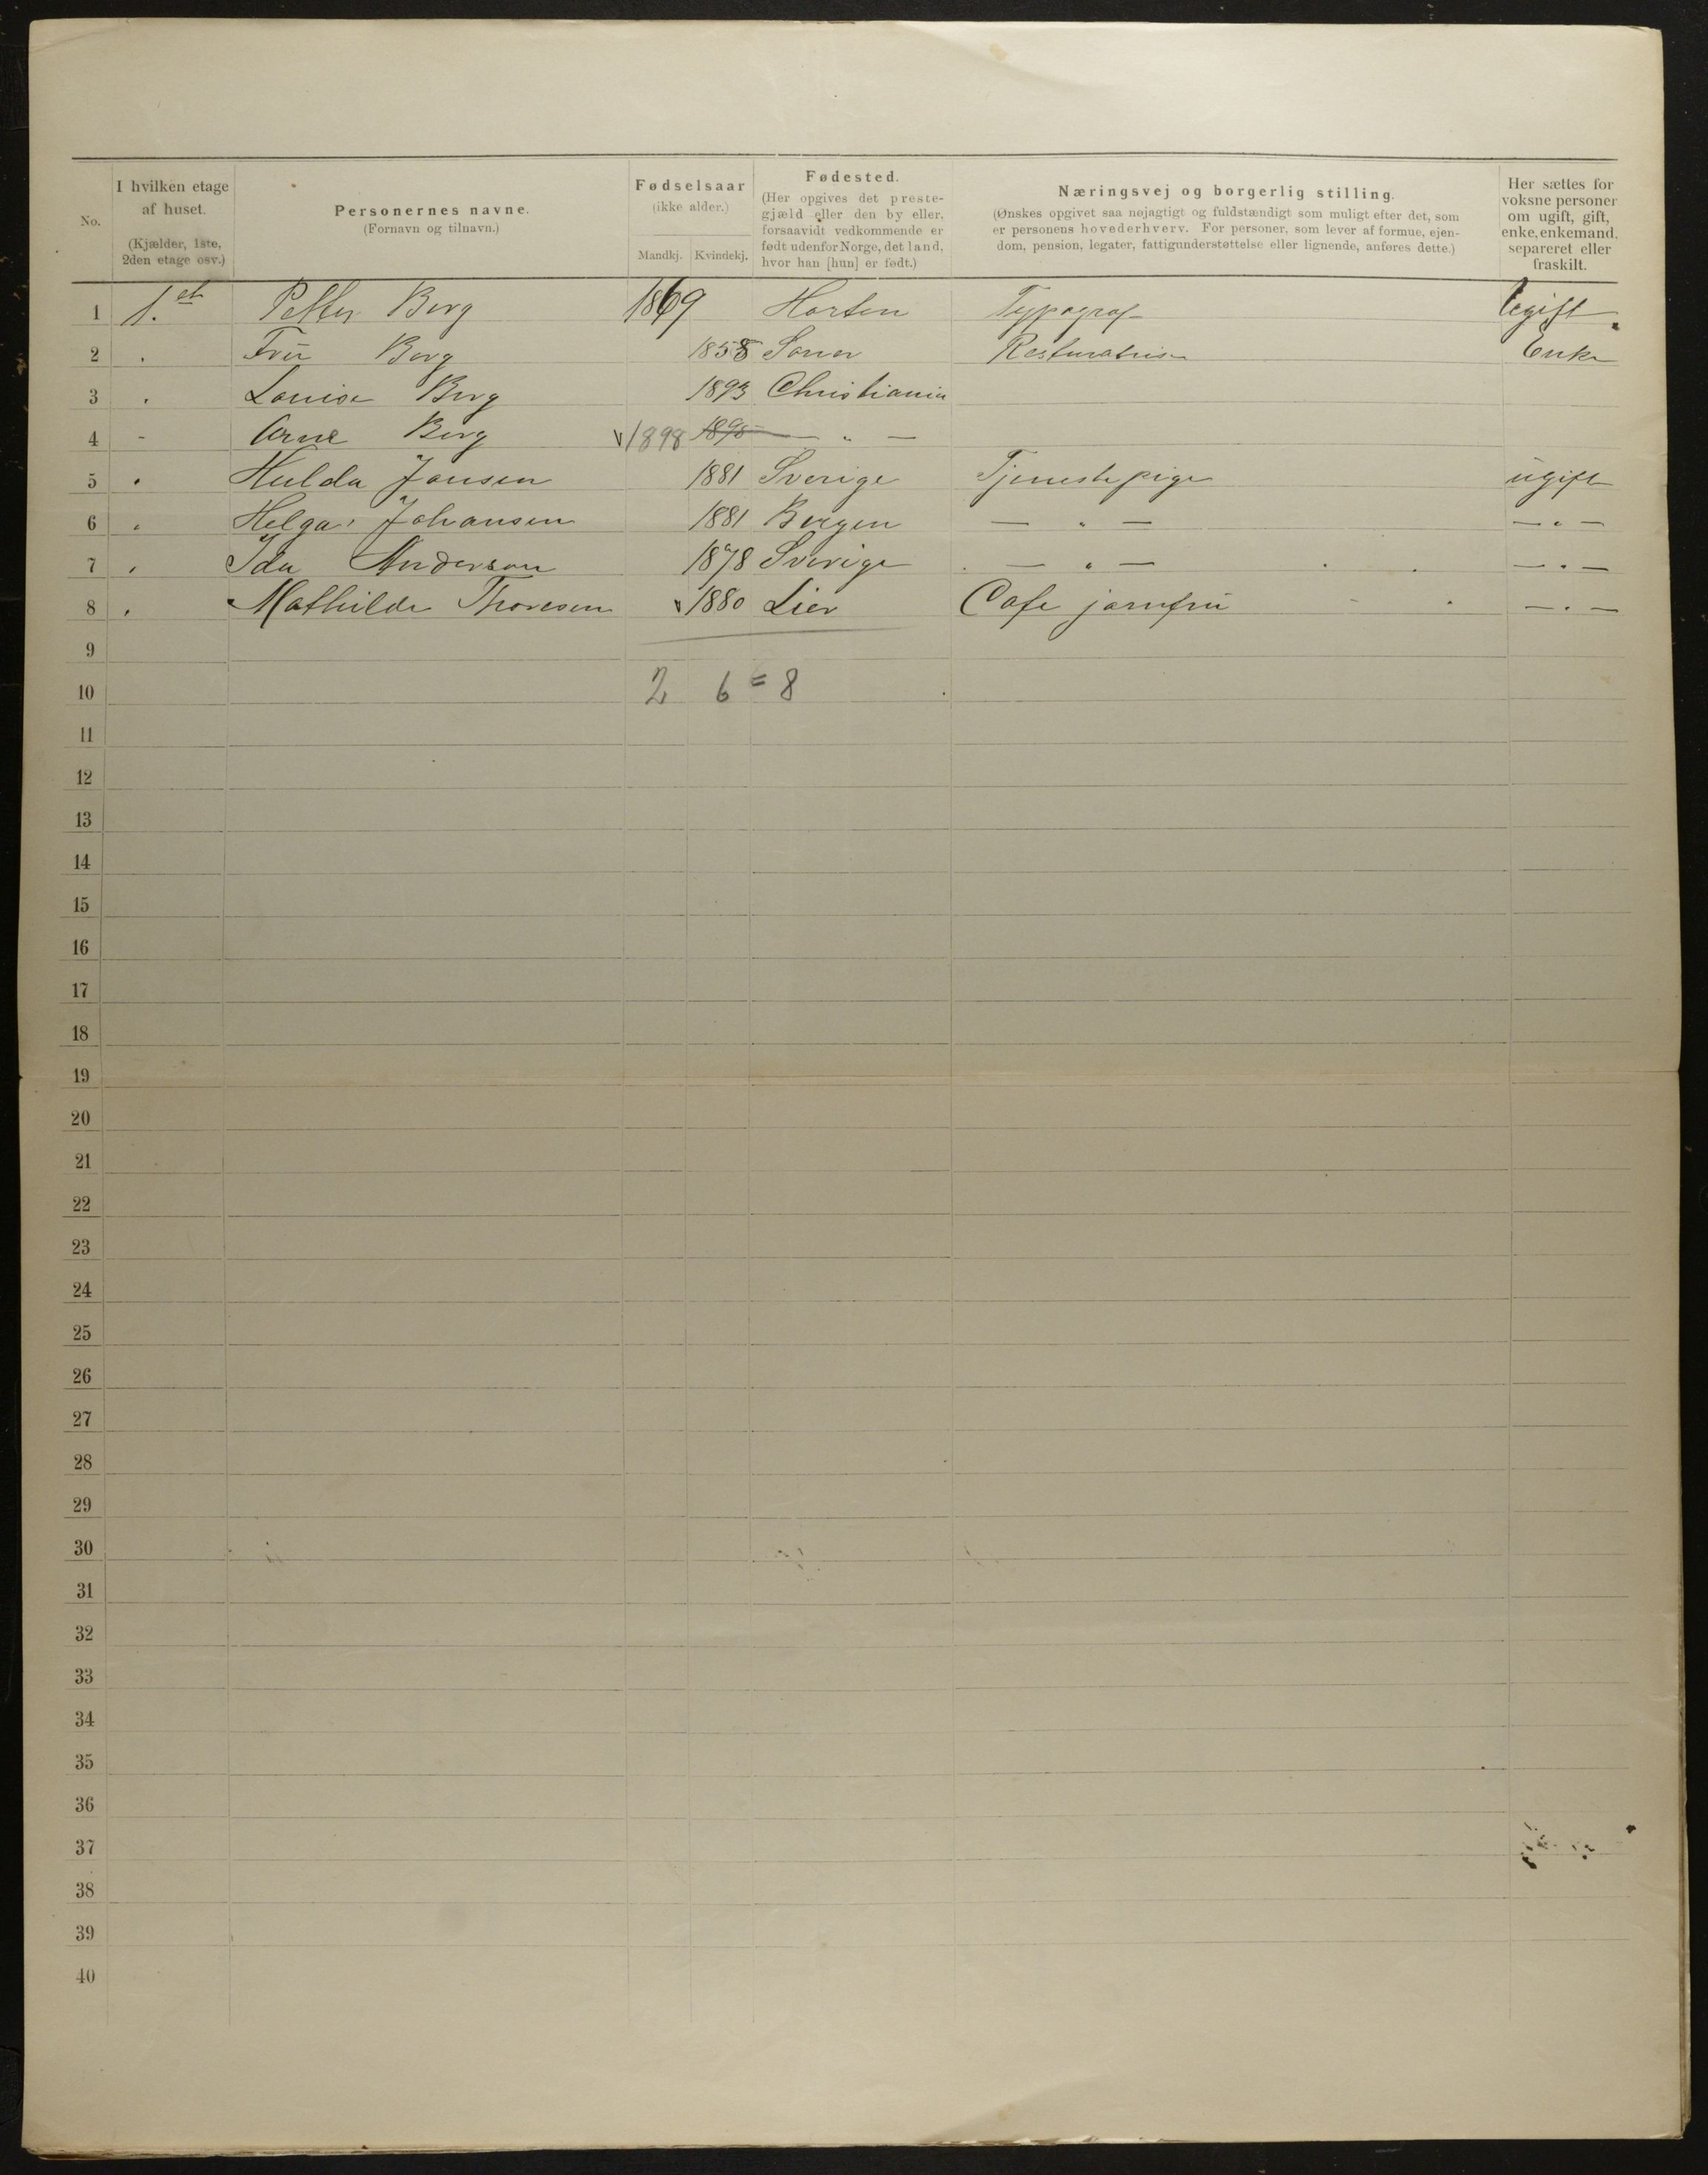 No.
I hvilken etage af huset.
(Kjælder, 1ste, 2den etage osv.)
Personernes navne.
(Fornavn og tilnavn.)
Fødselsaar
(ikke alder.)
Mandkj. Kvindekj.
Fødested.
(Her opgives det preste-
gjæld eller den by eller,
forsaavidt vedkommende er
født udenfor Norge, det land,
hvor han [hun] er født.)
Næringsvej og borgerlig stilling.
(Ønskes opgivet saa nøjagtigt og fuldstændigt som muligt efter det, som
er personens hovederhverv. For personer, som lever af formue, ejen-
dom, pension, legater, fattigunderstøttelse eller lignende, anføres dette.)
Her sættes for
voksne personer
om ugift, gift,
enke, enkemand,
separeret eller
fraskilt.
1 1. et Petter Berg 1869 Horten Typograf Ugift
2 . Frü Berg 1858 Soner Enke
3 . Louise Berg 1893 Christiania
4 - Arne Berg 1898 1895 — " —
5 . Hulda Jansen 1881 Sverige Tjenestepige ugift
6 . Helga Johansen 1881 Bergen — " — — " —
7 . Ida Anderson 1878 Sverige — " — — " —
8 . Mathilde Thoresen 1880 Lier Cafe jomfrü — " —
9
10 2 6 = 8
11
12
13
14
15
16
17
18
19
20
21
22
23
24
25
26
27
28
29
30
31
32
33
34
35
36
37
38
39
40